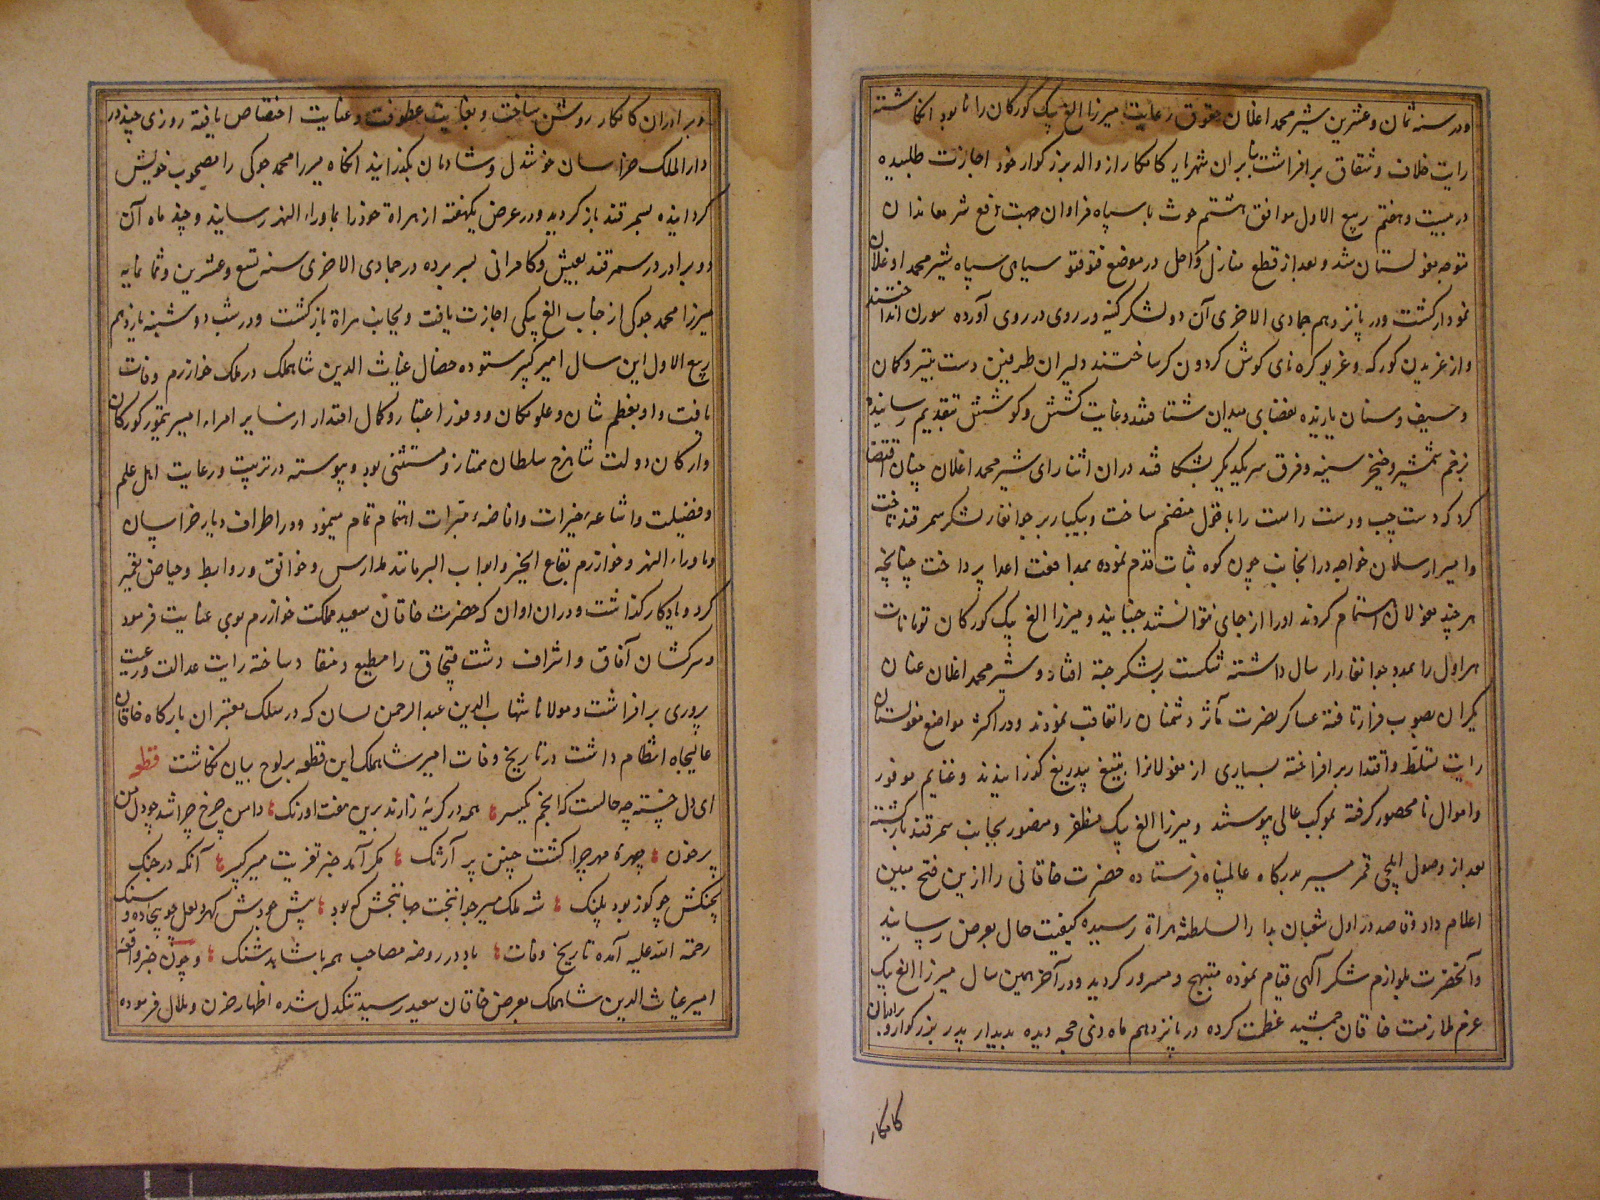 ودر سنه ثمان وعشرین شیر محمد اغلان حقوق رعایت امیرزا الغ بیک کورکان را نابود انکاشته
رایت خلاف وشقاق برافراشت بنابران شهریار کامکار از والد بزرکوار خود اجازت طلبیده
در بیست وهفتم ربیع الاول موافق هشتم حوت با سپاه فراوان جهت دفع شر معاندان
متوجه مغولستان شد وبعد از قطع منازل ومراحل در موضع قتوقتو سیاهی سپاه شیر محمد اوغلان
نمودار کشت ودر پانزدهم جمادی الاخری آن دو لشکر کینه ور روی در روی آورده سورن انداختند
واز غریدن کورکه وغریو کره نای کوش کردون کر ساختند دلیران طرفین دست بتیر وکمان
وسیف وسنان یازیده بفضای میدان شتافتند وغایت کشش وکوشش بتقدیم رسانیده
بزخم شمشیر وخنجر سینه وفرق سر یکدیکر بشکافتند دران اثنا رای شیر محمد اغلان چنان اقتضا
کرد که دست چپ ودست راست را با قول منضم ساخت وبیکبار بر جوانغار لشکر سمرقند تاخت
وامیر ارسلان خواجه در انجانب چون کوه ثبات قدم نموده بمدافعت اعدا پرداخت چنانچه
هر چند مغولان اهتمام کردند اورا از جای نتوانستند جنبانید ومیرزا الغ بیک کورکان تومانات
هراول را بمدد جوانغار ارسال داشته شکست بر لشکر جته افتاد وشیر محمد اغلان عنان
یکران بصوب فرار تافته عساکر نصرت مآثر دشمنان را تعاقب نمودند ودر اکثر مواضع مغولستان
رایت تسلط واقتدار برافراخته بسیاری از مغولانرا بتیغ بیدریغ کذرانیدند وغنایم موفور
واموال نامحصور کرفته بموکب عالی پیوستند ومیرزا الغ بیک مظفر ومنصور بجانب سمرقند بازکشته
بعد از وصول ایلچی قمر مسیر بدرکاه عالمپناه فرستاده حضرت خاقانی را ازین فتح مبین
اعلام داد وقاصد در اول شعبان بدار السلطنه هراة رسیده کیفیت حال بعرض رسانید
وآنحضرت بلوازم شکر الهی قیام نموده مبتهج ومسرور کردید ودر آخر همین سال میرزا الغ بیک
عزم ملازمت خاقان جمشید عظمت کرده در پانزدهم ماه ذی حجه دیده بدیدار پدر بزرکوار وبرادران
کامکار
وبرادران کامکار روشن ساخت وبغایت عطوفت وعنایت اختصاص یافته روزی چند در
دار الملک خراسان خوشدل وشادمان بکذرانید انکاه میرزا محمد جوکی را مصحوب خویش
کردانیده بسمرقند بازکردید ودر عرض یکهفته از هراة خودرا بماوراء النهر رسانید وچند ماه آن
دو برادر در سمرقند بعیش وکامرانی بسر برده در جمادی الاخری سنه تسع وعشرین وثمانمایه
میرزا محمد جوکی از جناب الغ بیکی اجازت یافت وبجانب هراة بازکشت ودر شب دوشنبه یازدهم
ربیع الاول این سال امیر کبیر ستوده خصال غیاث الدین شاهملک در ملک خوارزم وفات
یافت واو بعظم شان وعلو مکان ووفور اعتبار وکمال اقتدار از سایر امراء امیر تیمور کورکان
وارکان دولت شاهرخ سلطان ممتاز ومستثنی بود وپیوسته در تربیت ورعایت اهل علم
وفضیلت واشاعه خیرات وافاضه مبرات اهتمام تمام مینمود ودر اطراف دیار خراسان
وماوراء النهر وخوارزم بقاع الخیر وابواب البر مانند مدارس وخوانق وروابط وحیاض تعمیر
کرد ویادکار کذاشت ودران اوان که حضرت خاقان سعید مملکت خوارزم بوی عنایت فرمود
وسرکشان آفاق واشراف دشت قبچاق را مطیع ومنقاد ساخته رایت عدالت ورعیت
پروری برافراشت ومولانا شهاب الدین عبد الرحمن لسان که در سلک معتبران بارکاه خاقان
عالیجاه انتظام داشت در تاریخ وفات امیر شاهملک این قطعه بر لوح بیان نکاشت قطعه
ای دل خسته چه حالست که انجم یکسر همه در کریه زارند برین هفت اورنک دامن چرخ چرا شد چو دل من
پر خون چهره مهر چرا کشت چنین پر آژنک مکر آمد خبر تعزیت میر کبیر آنکه در جنک
بچنکش چو کوزن بود پلنک شه ملک میر جوانبخت جهانبخش که بود پیش جودش کهر ولعل چو بیجاده وسنک
رحمة الله علیه آمده تاریخ وفات باد در روضه مصاحب همه با شاهد شنک وچون خبر واقعه
امیر غیاث الدین شاهملک بعرض خاقان سعید رسید تنکدل شده اظهار حزن وملال فرموده